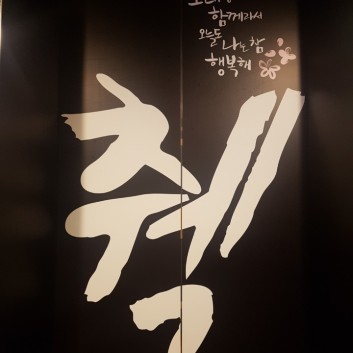 함께라서
오늘도 나는 참
행복해
췍